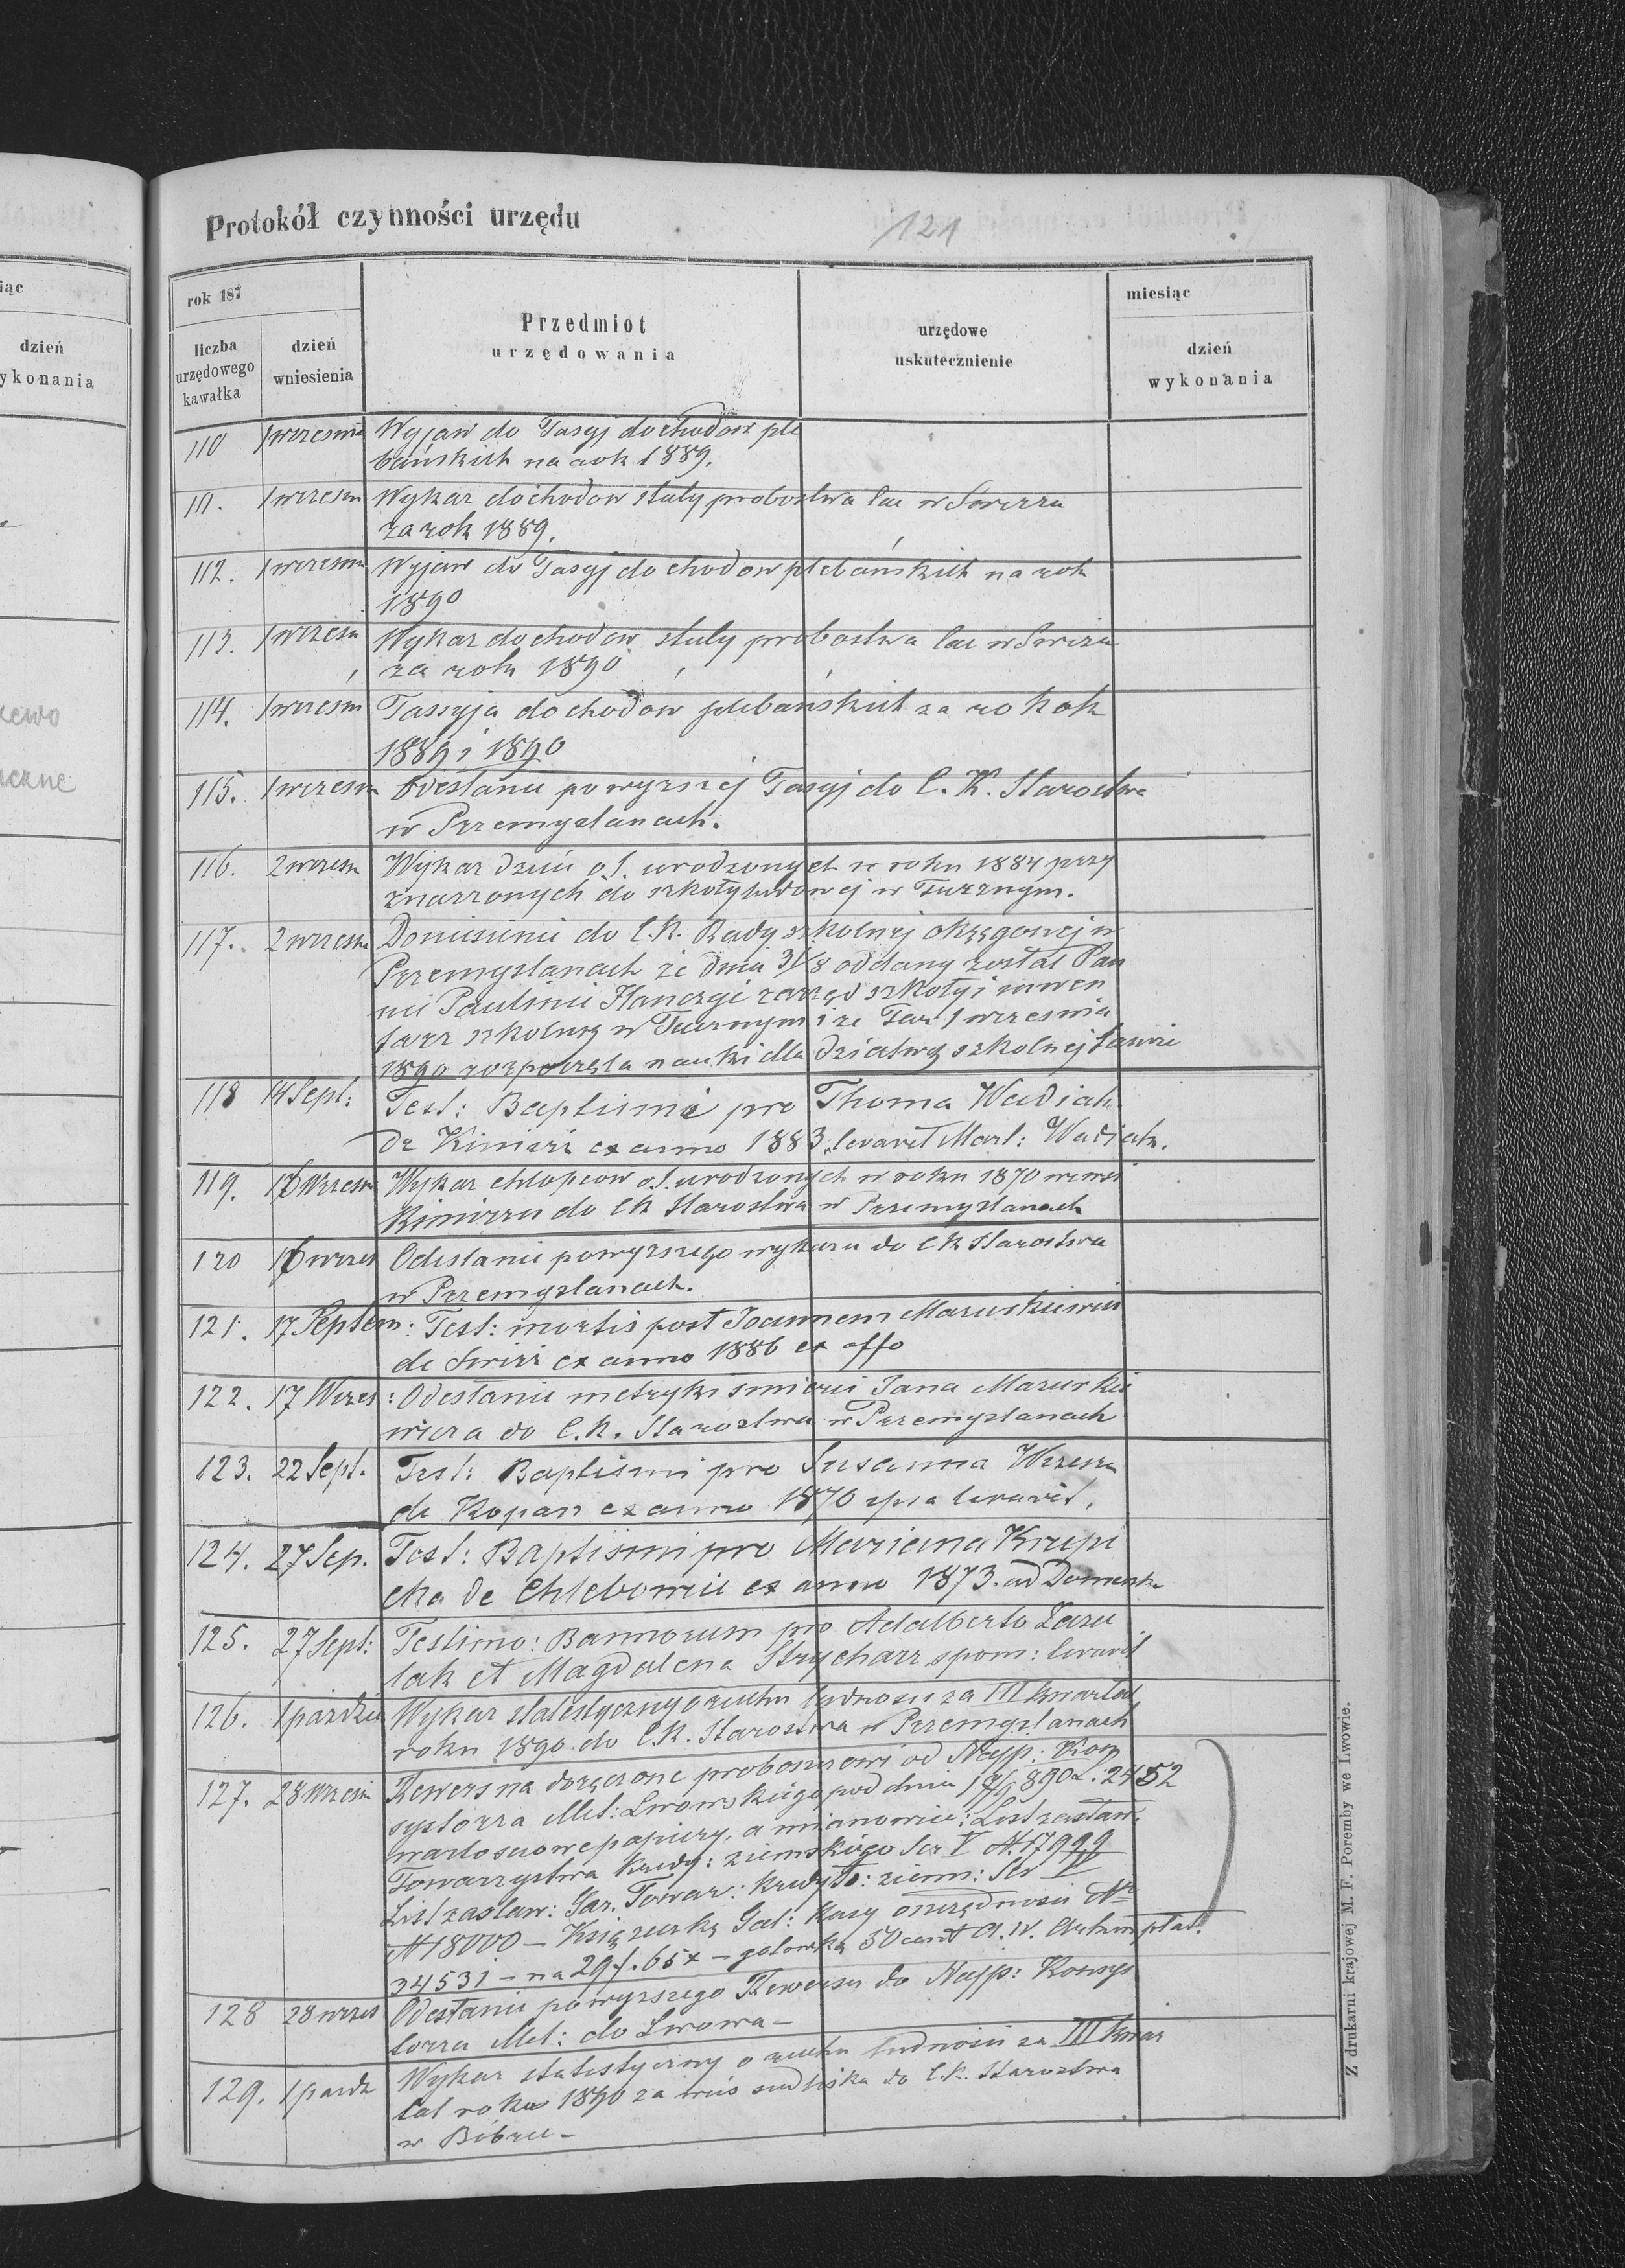 Protokół czynności urzędu
121
iąc
dzień
ykonania
rok 187
miesiąc
liczba
urzędowego
kawałka
dzień
wniesienia
Przedmiot
urzędowania
urzędowe
uskutecznienie
dzień
wykonania
110 1 wrzesnia Wyjaw do Fasyj dochodow ple
bańskich na rok 1889.
111. 1 wrzesn Wykaz dochodow stuly probostwa łac w Swirzu
za rok 1889.
112. 1 wrzesn Wyjaw do Fasyj dochodow plebańskich na rok
1890
113. 1 wrzesn Wykaz dochodow stuly probostwa łac w Swirzu
za rok 1890
114. 1 wrzesn Fassyja dochodow plebańskich za rok
1889 i 1890
115. 1 wrzesn Odesłanie powyrszej Fasyj do C. K. Starostwa
w Przemyslanach.
116. 2 wrzesn Wykaz dzieci o.ł. urodzonych w roku 1884 przy
znaczonych do szkoły ludowej w Tucznym.
117. 2 wrzesn Doniesienie do C.K. Rady szkolnej okręgowej w
Przemyslanach że dnia 31/8 oddany został Pan
nie Paulinie zarząd szkoły i inwen
tarz szkolny w Tucznym i że 1 wrzesnia
1890 rozpoczęła nauki dla dziatwy szkolnej
118 14 Sept: Test: Baptismi pro Thoma Wadiak
de Kimirz ex anno 1883. levavit Mart: Wadiak.
119. 16 Wrzesn Wykaz chlopcow o.ł. urodzonych w roku 1870 we wsi
Kimirzu do CK Starostwa w Przemyslanach
120 16 wrzes Odesłanie powyrszego wykazu do CK Starostwa
w Przemyslanach.
121. 17 Septem: Test: mortis post Joannem Mazurkiewicz
de Swirz ex anno 1886 ex offo
122. 17 Wrzes: Odesłanie metryki smierci Jana Mazurkie
wicza do C.K. Starostwa w Przemyslanach
123. 22 Sept. Test: Baptismi pro Susanna
de Kopan ex anno 1870 ipsa levavit.
124. 27 Sep. Test: Baptismi pro Mariana Krupi
cka de Chlebowice ex anno 1873.
125. 27 Sept: Testimo: Bannorum pro Adalberto Lazu
lak et Magdalena Strycharz spons: levavit
126. 1 pazdzie Wykaz statestyczny o ruchu ludnosci za III kwartał
roku 1890 do C.K. Starostwa w Przemyslanach
127. 28 Wrzesn Rewers na doręczone proboszczowi od Najp: Kon
systorza Met: Lwowskiego pod dniu 890 L: 2452
wartosciowe papiery, a mianowicie: List zastaw.
Towarzystwa Kredy: ziemskiego Ser V № 17999
List zastaw: Gar. Towar: Kredyto: ziems: Ser V
№ 18000 — Książeczkę Gal: Kasy oszczędnosci Nr
34531 — na 29 f. 65 x — gotowkę 50 cent A.W.
128 28 wrzes Odesłanie powyrszego Rewersu do Najp: Konsys
torza Met: do Lwowa —
129. 1 pazdz Wykaz statestyczny o ruchu ludnosci za III kwar
tał roku 1890 za wieś do C.K. Starostwa
w Bóbrce —
Z drukarni krajowej M. F. Poremby we Lwowie.